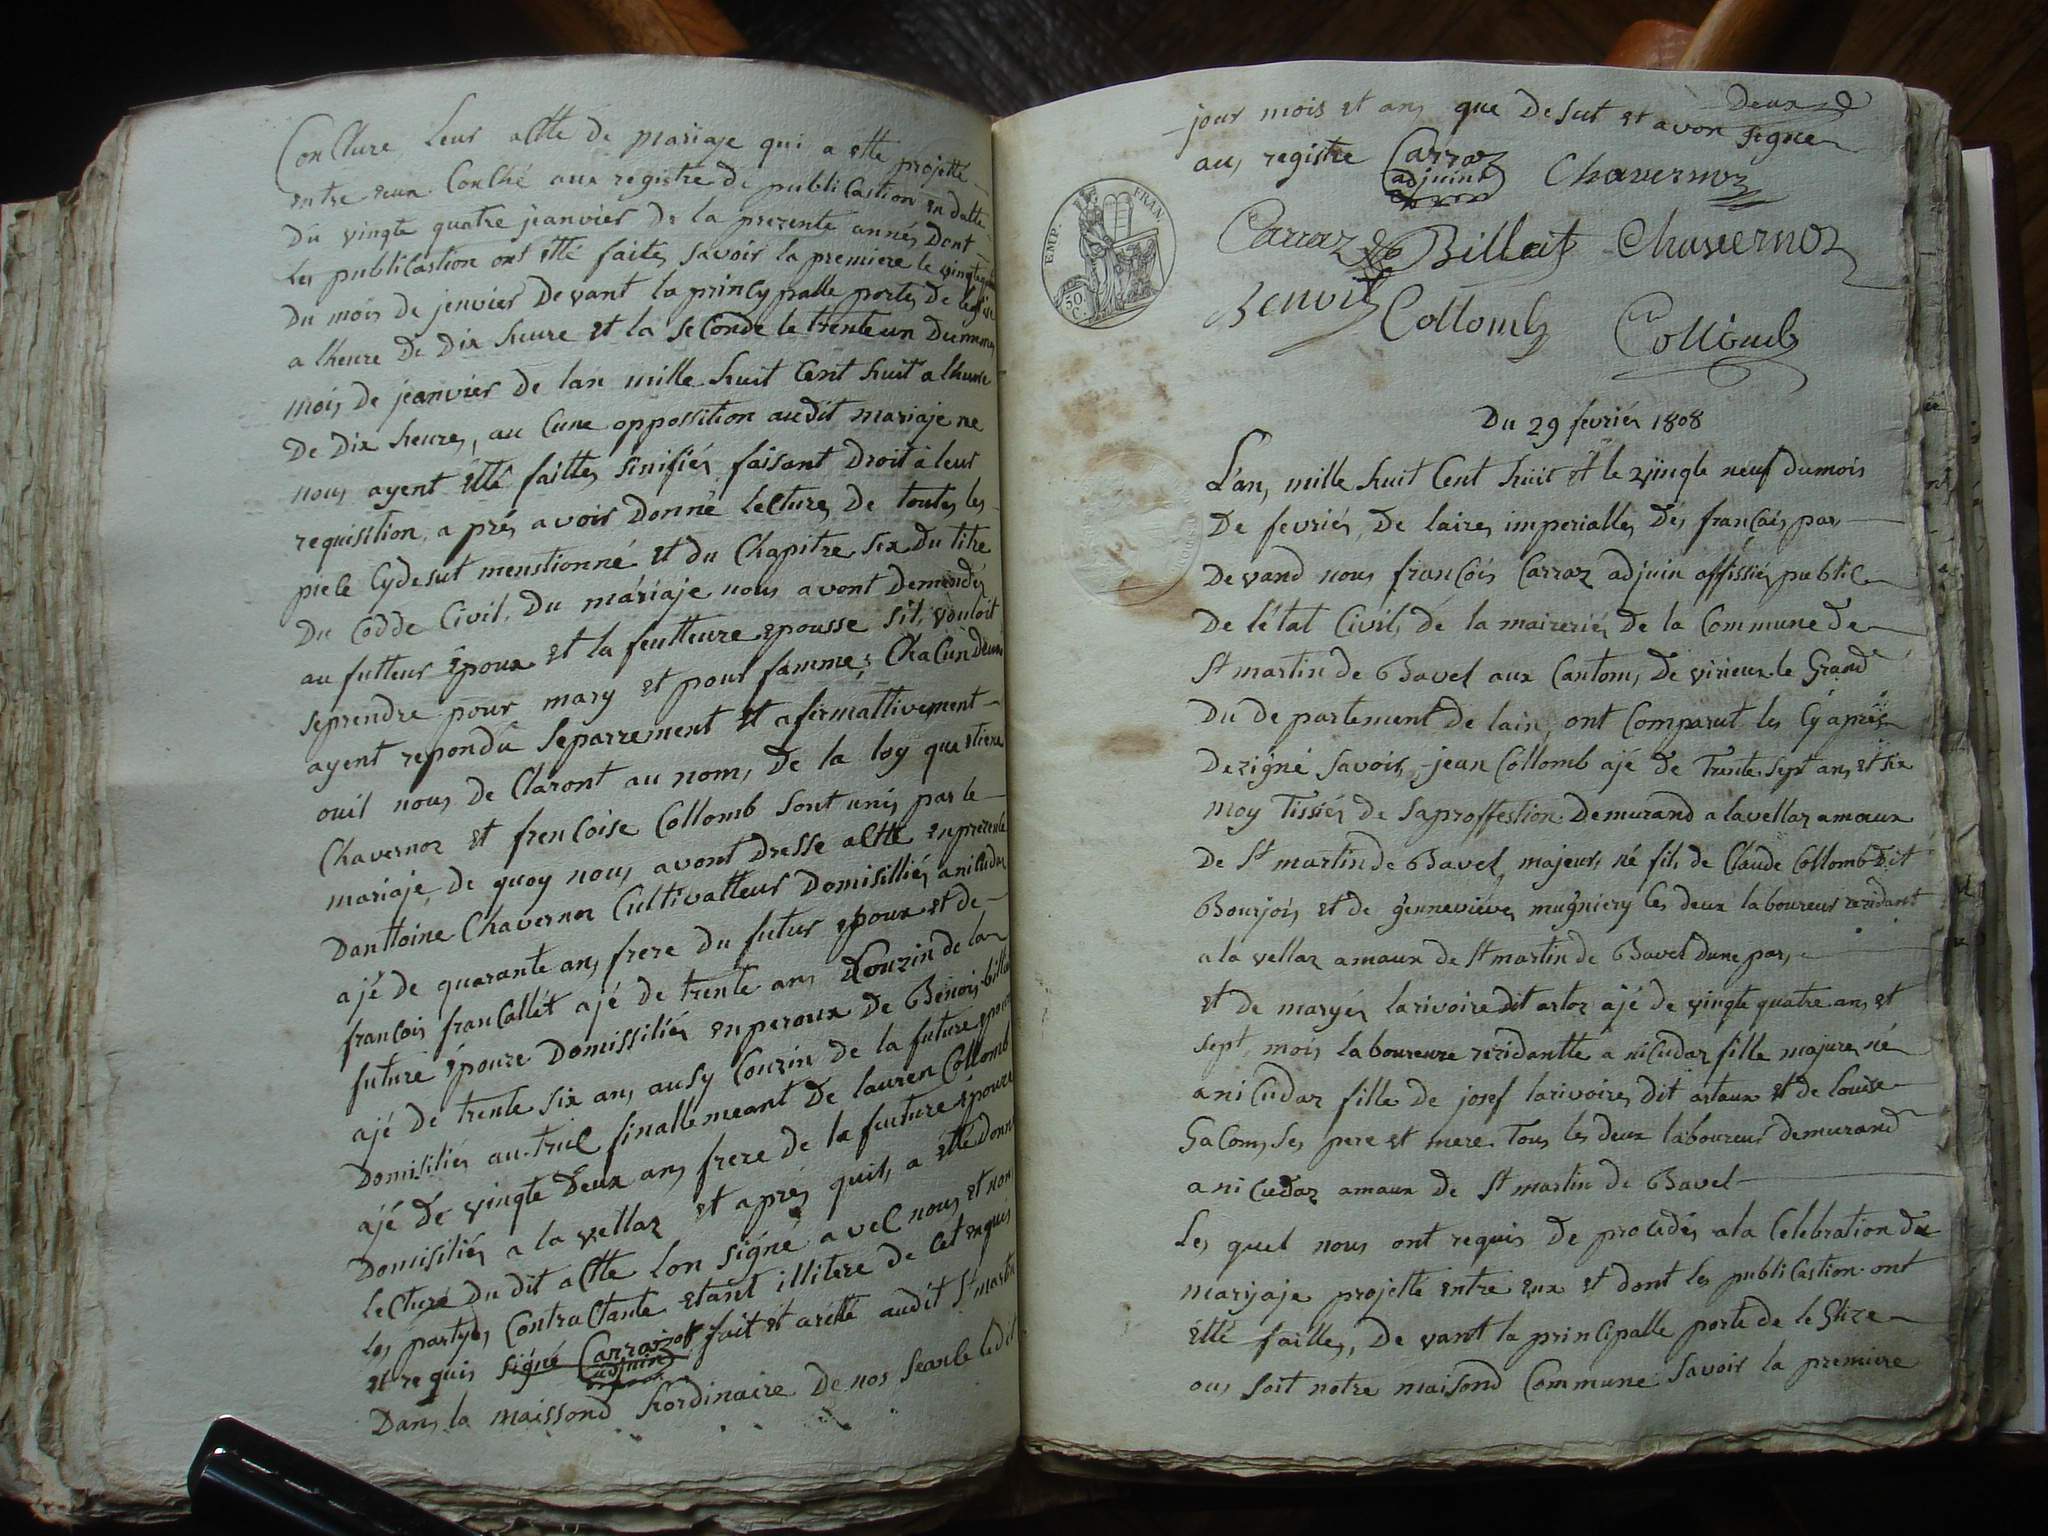 Conclure leur actte de mariaje qui a ette projetté
entre eux Couché aux registre de publicastion en datte
Du vingte quatre jeanvier de la prezente année Dont
les publicastion ont etté faite, savoir la premiere le vingte
Du mois de jenvier Devant la princypalle porte de leglise
a lheure de Dix heure et la seconde le trente un Du meme
mois de jeanvier de lan mille huit Cent huit a lheure
De Dix heures, au Cune oppossition audit mariaje ne
nous ayent etté faittes sinifiés faisant Droit a leur
requisition, a prés avoir Donné lecture de toutes les
piece Cydesut menstionné et du Chapitre six du titre
Du Codde Civil, Du máriaje nous avont Demandés
au futteur Epoux et la feutteure epousse sil vouloit
seprendre pour mary et pour famme, Chacun deux
ayent repondu separrement et afirmattivement
ouil nous de Claront au nom, de la loy que etiene
Chavernoz et frencoise Collomb sont unis par le
mariaje, de quoy nous avont dresse actte en prezence
Danttoine Chavernoz Cultivatteur Domisilliés a nicudaz
ajé de quarante ans frere du futur epoux et de
francois francallét ajé de trente ans Couzin de la
future épouze Domissiliés en peroux de Benois billat
ajé de trente six ans ausy Couzin de la future epouze
Domisiliés au truc finallemeant de lauren Collomb
ajé de vingte Deux ans frere de la feuture épouze
Domisiliés a la vellaz et aprés quil, a etté donné
lecture Du dit actte lon signé avec nous et non
les partyes Contractante etant illitere de cet enquis
et requis signé Carraz adjuint fait et arétté audit St martin
Dans la maissond hordinaire De nos seance ledit
jour mois et ans que Desut et avon signe
Deux
aus registre Carraz adjuint Chavernoz
EMP. FRAN.
50 C.
Carraz Billat Chavernoz
Benoit Collomb Collomb
Du 29 fevriér 1808
L'an, mille huit Cent huit et le vingte neuf Dumois
De fevriés, De laires imperialles Dés français par
Devand nous francois Carraz adjuin offissiés public
De létat Civil, de la mairerie, de la Commune De
St martin de Bavel aux Cantom, De virieux le Grand
Du departement de lain, ont Comparut les Cy aprés
Dezigné savoir, jean Collomb ajé de Trente sept ans et six
moy Tissiés de saproffestion Demurand a lavellaz amaux
De St martin de Bavel, majeur, né fils de Claude Collomb Dit
Bourjois et de génneviéve, mugniery les deux laboureur rezidant
a la vellaz amaux de St martin de Bavel dune par,
et de maryés larivoire dit artoz ajé de vingte quatre ans et
sept mois laboureure rezidantte a nicudaz fille majure, né
a nicudaz fille de josef larivoire, dit artaux et de louise
Gacom, ses pere et mere Tous les deux laboureur demurand
a nicudaz amaux de St martin de Bavel
Les quel nous ont requis de procedés a la Celebration du
maryaje projetté entre eux et dont les publicastion ont
etté faittes, De vant la principalle porte de leglize
ous soit notre maisond Commune savoir la premiere